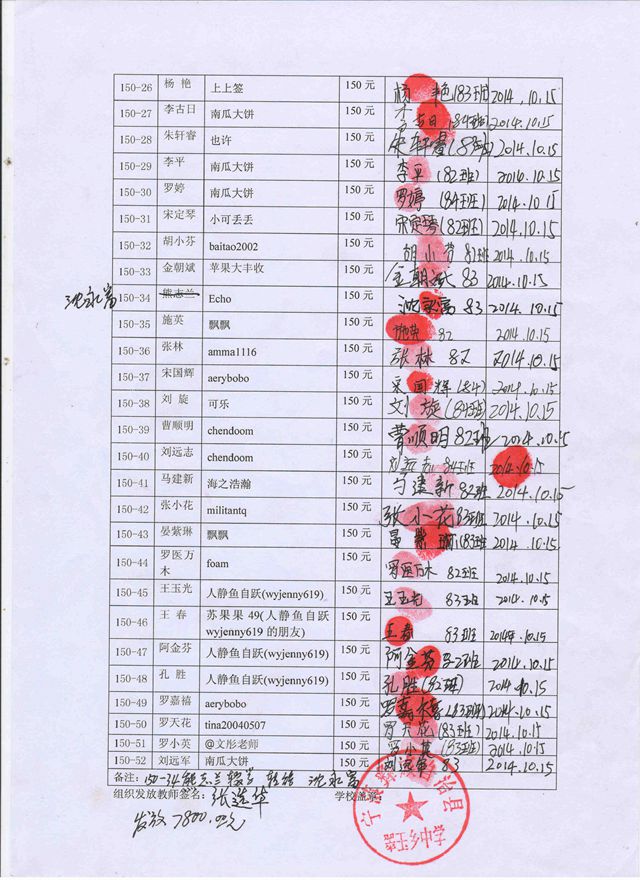 150-26 杨 艳 上上签 150 元 杨 艳 (83班) 2014.10.15
150-27 李古日 南瓜大饼 150 元 李古日 (84班) 2014.10.15
150-28 朱轩睿 也许 150 元 朱轩睿 2014.10.15
150-29 李平 南瓜大饼 150 元 李平 (82班) 2014.10.15
150-30 罗婷 南瓜大饼 150 元 罗婷 (84班) 2014.10.15
150-31 宋定琴 小可丢丢 150 元 宋定琴 (82班) 2014.10.15
150-32 胡小芬 baitao2002 150 元 胡小芬 82班 2014.10.15
150-33 金朝斌 苹果大丰收 150 元 金朝斌 83 2014.10.15
沈永富 150-34 熊志兰 Echo 150 元 沈永富 83 2014.10.15
150-35 施英 飘飘 150 元 施英 82 2014.10.15
150-36 张林 amma1116 150 元 张林 82 2014.10.15
150-37 宋国辉 aerybobo 150 元 宋国辉 2014.10.15
150-38 刘 旋 可乐 150 元 刘 旋 (84班) 2014.10.15
150-39 曹顺明 chendoom 150 元 曹顺明 82班 2014.10.15
150-40 刘远志 chendoom 150 元 刘远志 84班 2014.10.15
150-41 马建新 海之浩瀚 150 元 马建新 82班 2014.10.15
150-42 张小花 militantq 150 元 张小花 83班 2014.10.15
150-43 晏紫琳 飘飘 150 元 晏紫琳 83班 2014.10.15
150-44 罗医万木 foam 150 元 罗医万木 82班 2014.10.15
150-45 王玉光 人静鱼自跃(wyjenny619) 150 元 王玉光 83班 2014.10.15
150-46 王 春 苏果果 49(人静鱼自跃wyjenny619 的朋友) 150 元 王春 83班 2014年.10.15
150-47 阿金芬 人静鱼自跃(wyjenny619) 150 元 阿金芬 82班 2014.10.15
150-48 孔 胜 人静鱼自跃(wyjenny619) 150 元 孔胜 (82班) 2014.10.15
150-49 罗嘉禧 aerybobo 150 元 罗嘉禧 (83班) 2014.10.15
150-50 罗天花 tina20040507 150 元 罗天花 (83班) 2014.10.15
150-51 罗小英 @文彤老师 150 元 罗小英 (83班) 2014.10.15
150-52 刘远军 南瓜大饼 150 元 刘远军 83 2014.10.15
备注: 150-34 熊志兰 转给 沈永富
组织发放教师签名: 张选华 学校盖章:
发放7800.00元